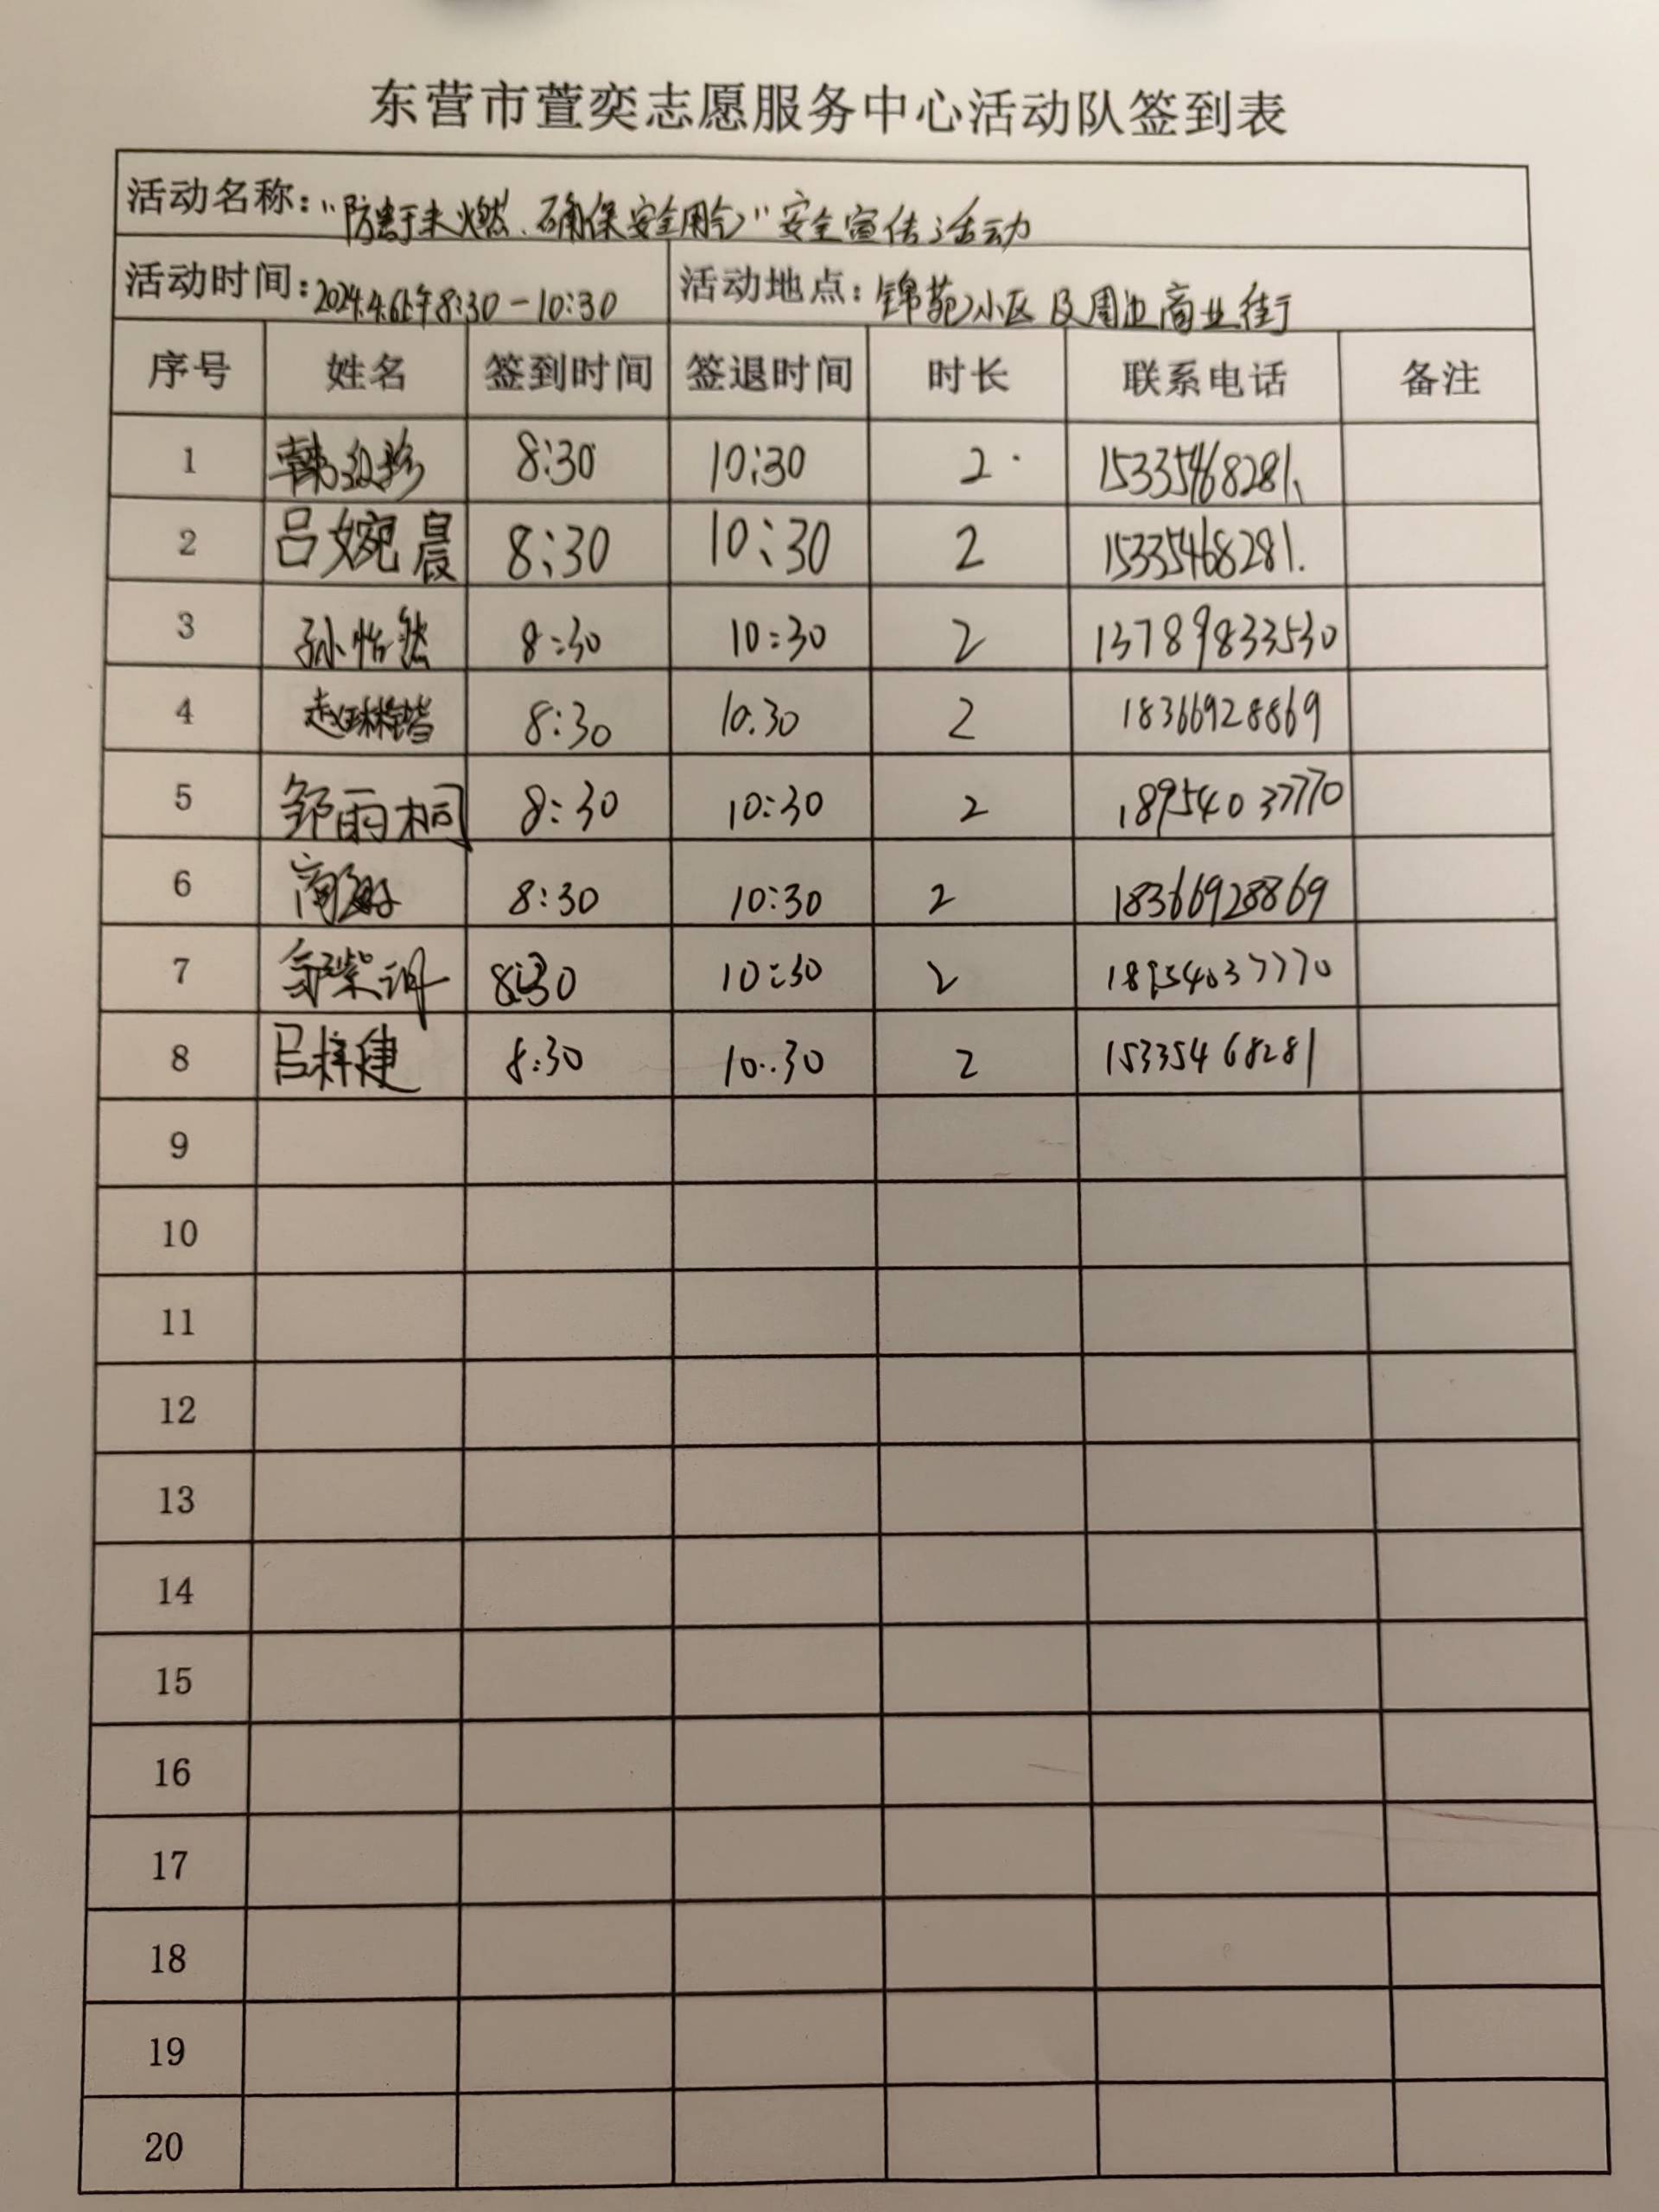 东营市萱奕志愿服务中心活动队签到表
活动名称：“防患于未“燃”、确保安全用气”安全宣传活动
活动时间：2024.4.6上午8:30-10:30 活动地点：锦苑小区及周边商业街
序号 姓名 签到时间 签退时间 时长 联系电话 备注
1 韩 8:30 10:30 2 15335468281
2 吕婉晨 8:30 10:30 2 15335468281.
3 孙怡然 8:30 10:30 2 13789833530
4 赵琳锴 8:30 10.30 2 18366928869
5 邹雨桐 8:30 10:30 2 18954037770
6 8:30 10:30 2 18366928869
7 8:30 10:30 2 18954037770
8 吕梓健 8:30 10:30 2 15335468281
9
10
11
12
13
14
15
16
17
18
19
20